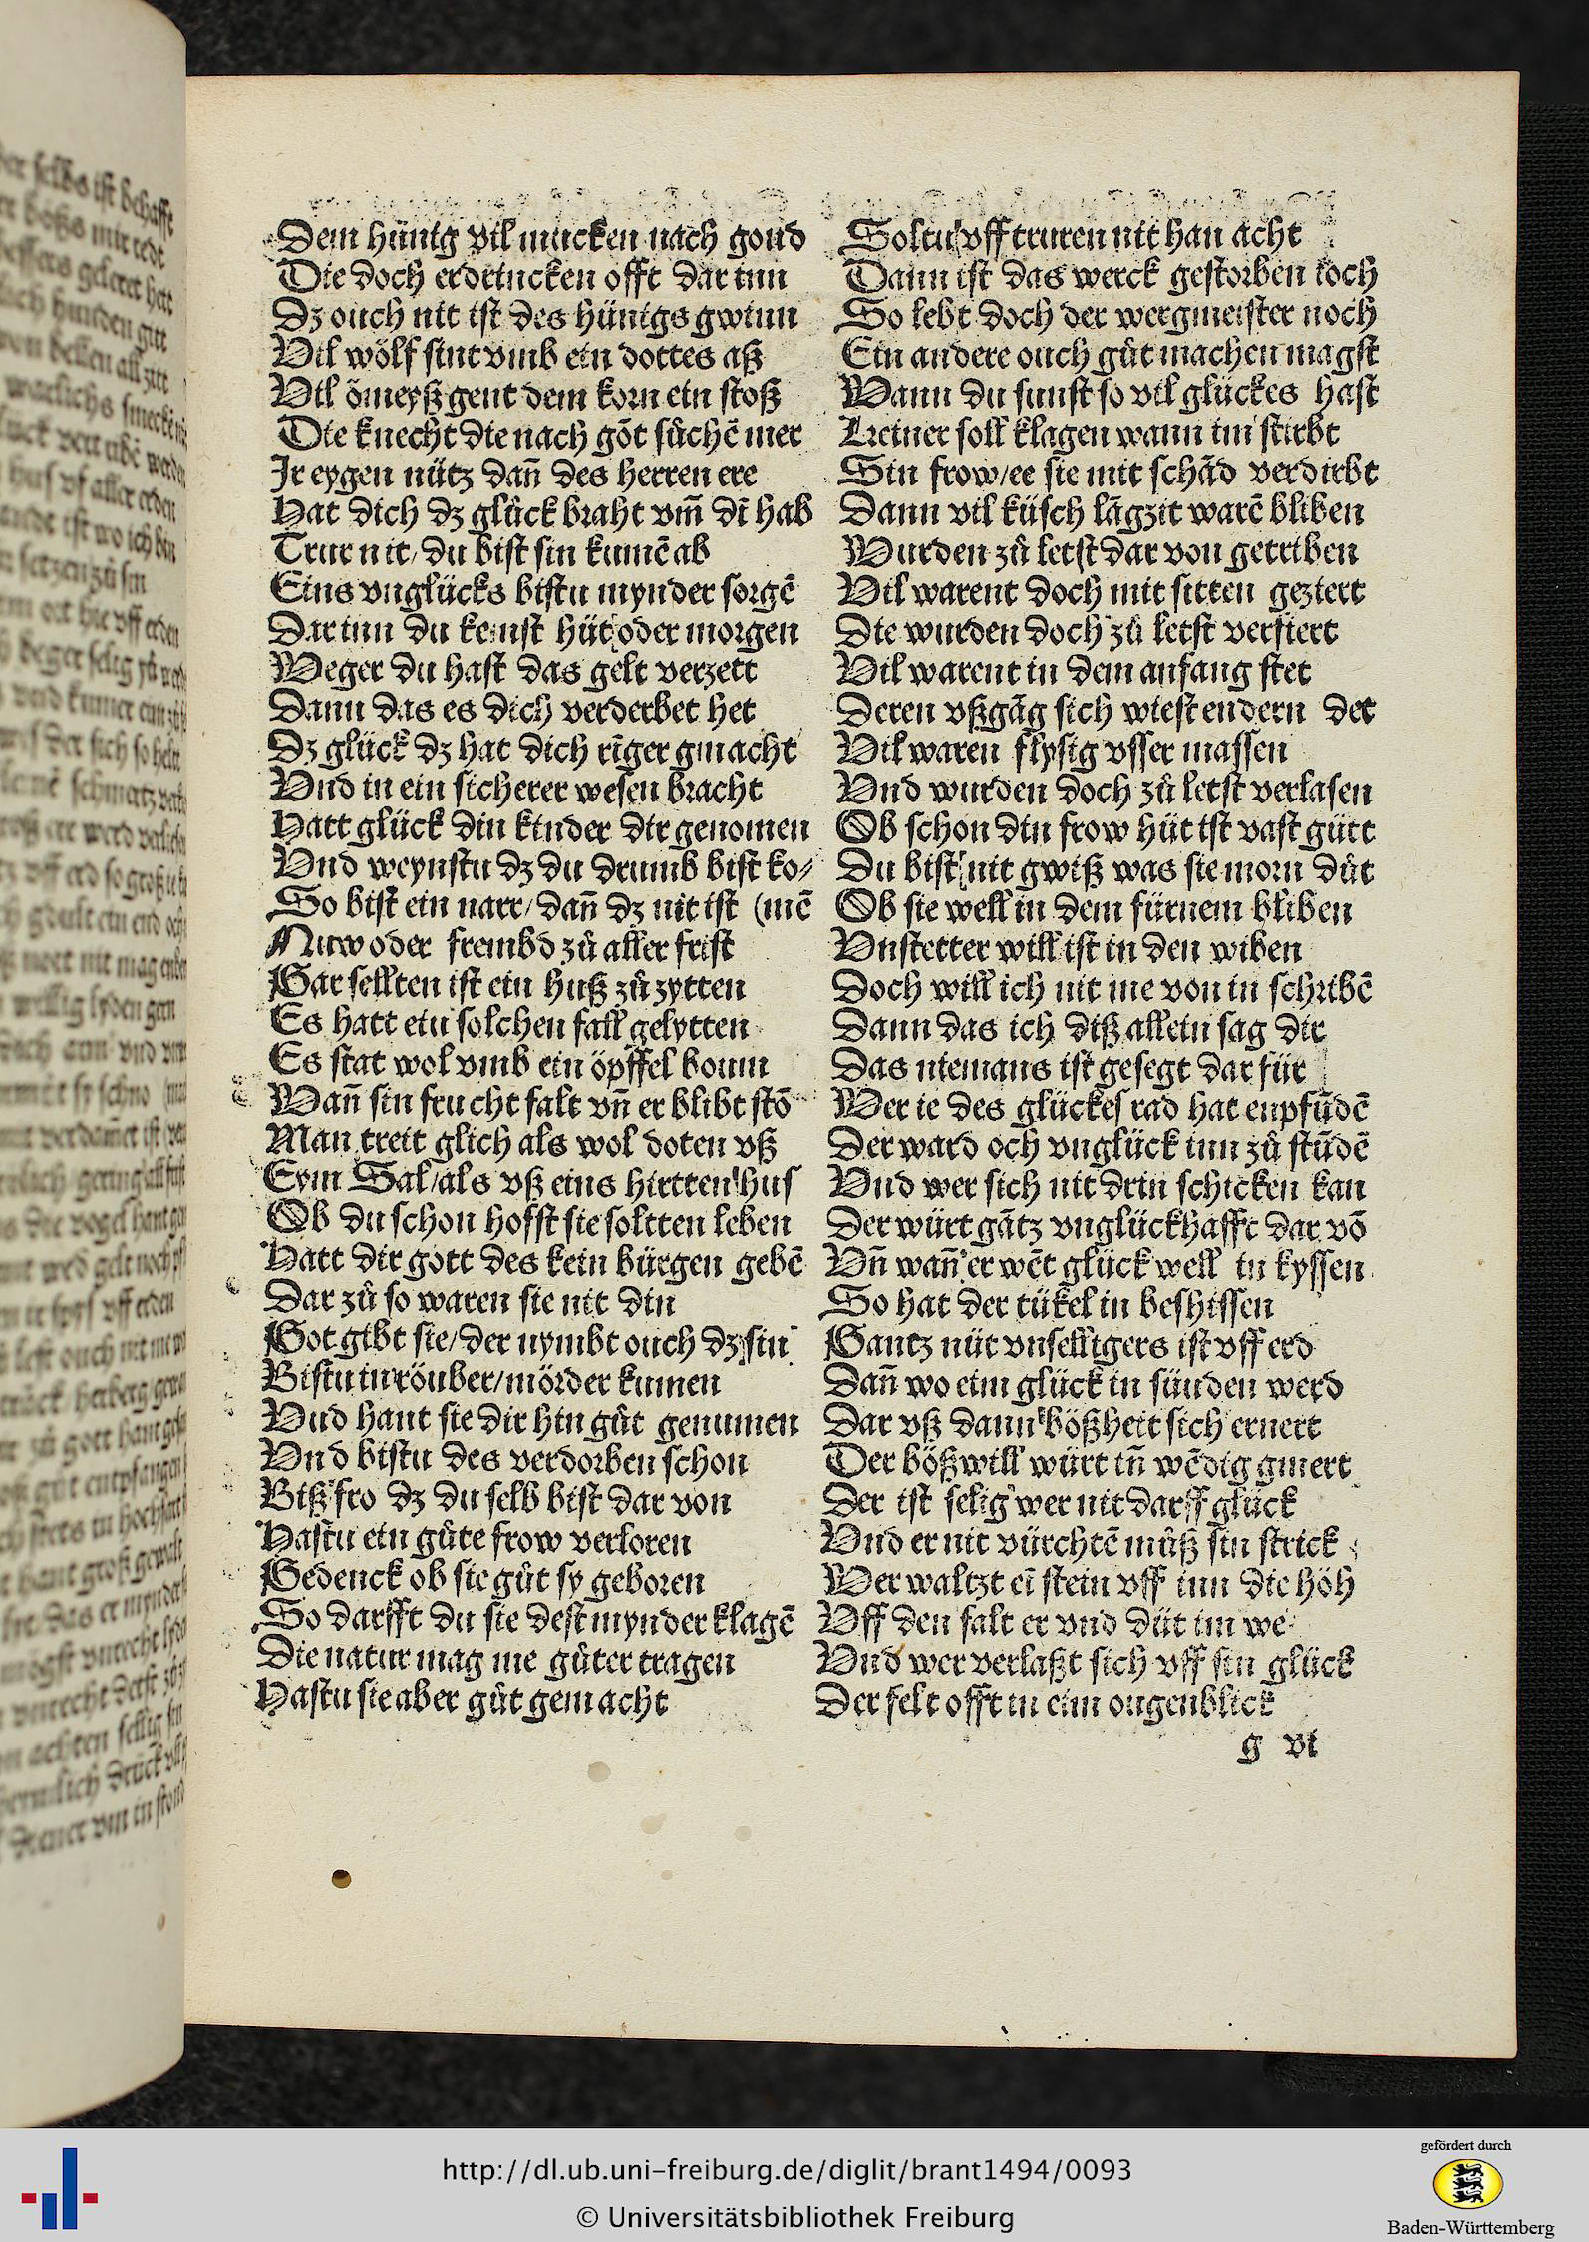 Dem hünig vil mucken nach gond
Die doch erdrincken offt dar inn
Dz ouch nit ist des hünigs gwinn
Vil wölf sint vmb ein dottes aß
Vil ömeyß gent dem korn ein stoß
Die knecht die nach gōt sůchē mer
Ir eygen nütz dañ des herren ere
Hat dich dz glück braht vm̄ dī hab
Trur nit/ du bist sin kumē ab
Eins vnglücks bistu mynder sorgē
Dar inn du kemst hüt oder morgen
Weger du hast das gelt verzett
Dann das es dich verderbet het
Dz glück dz hat dich rīger gmacht
Vnd in ein sicherer wesen bracht
Hatt glück din kinder dir genomen
Vnd weynstu dz du drumb bist ko⸗
So bist ein narr/ dañ dz nit ist (mē
Nuw oder frembd zů aller frist
Gar sellten ist ein huß zů zytten
Es hatt ein solchen fall gelytten
Es stat wol vmb ein öpffel boum
Wañ sin frucht falt vñ er blibt stō
Man treit glich als wol doten vß
Eym Sal/als vß eins hirtten hus
Ob du schon hofft sie soltten leben
Hatt dir gott des kein bürgen gebē
Dar zů so waren sie nit din
Got gibt sie/der nymbt ouch dz sin
Bistu in röuber/mörder kumen
Vnd hant sie dir hin gůt genumen
Vnd bistu des verdorben schon
Biß fro dz du selb bist dar von
Hastu ein gůte frow verloren
Gedenck ob sie gůt sy geboren
So darfft du sie dest mynder klagē
Die natur mag me gůter tragen
Hastu sie aber gůt gemacht
Soltu vff truren nit han acht
Dann ist das werck gestorben ioch
So lebt doch der wergmeister noch
Ein andere ouch gůt machen magst
Wann du sunst so vil glückes hast
Keiner soll klagen wann im stirbt
Sin frow/ee sie mit schād verdirbt
Dann vil küsch lāgzit warē bliben
Wurden zů letst dar von getriben
Vil warent doch mit sitten geziert
Die wurden doch zů letst verfiert
Vil warent in dem anfang stet
Deren vßgāg sich wiest endern det
Vil waren flysig vsser massen
Vnd wurden doch zů letst verlasen
Ob schon din frow hüt ist vast gütt
Du bist nit gwiß was sie morn důt
Ob sie well in dem fürnem bliben
Vnstetter will ist in den wiben
Doch will ich nit me von in schribē
Dann das ich diß allein sag dir
Das niemans ist gesegt dar für
Wer ie des glückes rad hat enpfūdē
Der ward och vnglück inn zů stūdē
Vnd wer sich nit drin schicken kan
Der würt gātz vnglückhafft dar vō
Vñ wañ er wēt glück well in kyssen
So hat der tüfel in beshissen
Gantz nüt vnselligers ist vff erd
Dañ wo eim glück in sünden werd
Dar vß dann bößheit sich ernert
Der böß will würt iñ wēdig gmert
Der ist selig wer nit darff glück
Vnd er nit vürchtē můß sin strick
Wer waltzt eī stein vff inn die höh
Vff den falt er vnd düt im we
Vnd wer verlaßt sich vff sin glück
Der felt offt in eim ougenblick
g vi
http://dl.ub.uni-freiburg.de/diglit/brant1494/0093
© Universitätsbibliothek Freiburg
gefördert durch
Baden-Württemberg